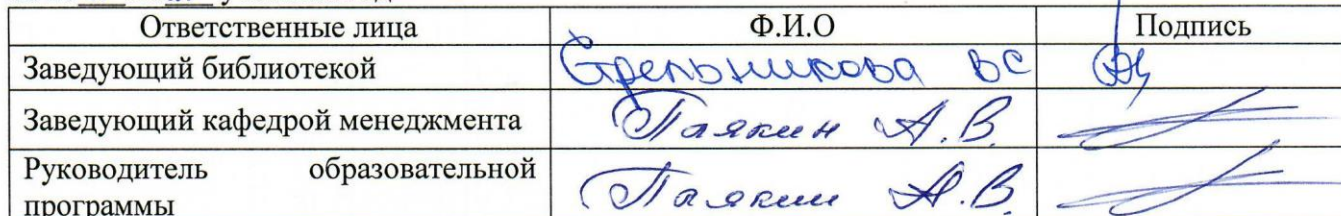 Ответственные лица Ф.И.О Подпись
Заведующий библиотекой Стрельникова ВС
Заведующий кафедрой менеджмента А.В.
Руководитель образовательной А.В.
программы